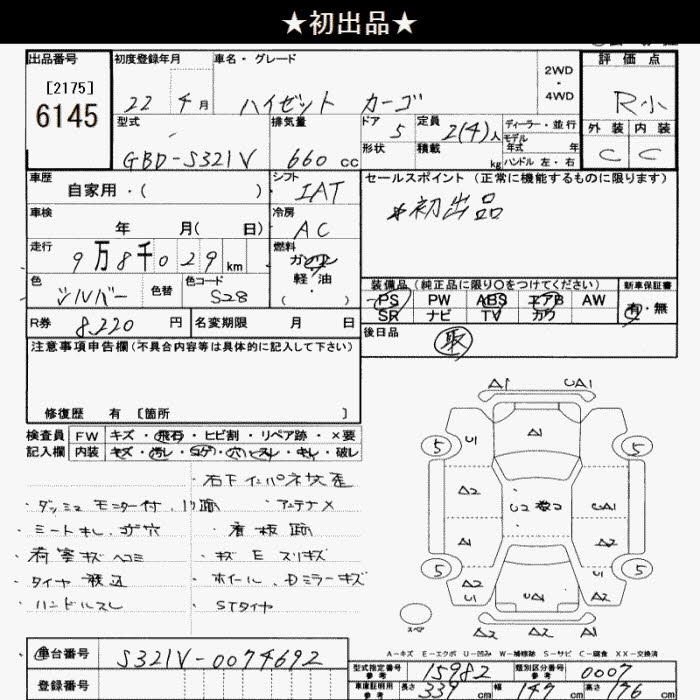 ★初出品★
出品番号 初度登録年月 車名・グレード 2WD・4WD 評価点
[2175] 6145 22 年 4月 ハイゼット カーゴ R小
型式 排気量 ドア 5 定員 2(4)人 ディーラー・並行 外装 内装
GBD-S321V 660cc 形状 積載 kg モデル年式 年 C C
ハンドル 左・右
車歴 自家用・( ) シフト IAT セールスポイント(正常に機能するものに限ります)
車検 年 月( 日) 冷房 AC *初出品
走行 9万8千029km 燃料 ガソリン 軽・油 ( )
色 シルバー 色替 色コード S28 装備品(純正品に限り○をつけてください) 新車保証書
PS PW ABS エアB AW 有・無
R券 8,220円 名変期限 月 日 SR ナビ TV カワ
注意事項申告欄(不具合内容等は具体的に記入して下さい) 後日品 取
修復歴 有 [箇所 ]
検査員 FW キズ・飛石・ヒビ割・リペア跡・×要
記入欄 内装 キズ・汚レ・コゲ・穴・スレ・キレ・破レ
・右下インパネ快歪
・ダッシュ モニター付、リ跡 ・アンテナメ
・ミートキレ、コゲ穴 ・看板跡
・荷室キズ ヘコミ ・キズ E スリキズ
・タイヤ ・ホイール、Dミラーキズ
・ハンドルスレ ・STタイヤ
A1 UA1
5 U1 A1 5
A2 UA1
A1 A2
5 A2 UA1 U1 A2 5
スペア A2 A2 A1
A-キズ E-エクボ U-凹み W-補修跡 S-サビ C-腐食 XX-交換済
車台番号 S321V-0074692
登録番号
型式指定番号参考 15982 類別区分番号参考 0007
車庫証明用参考 長さ 339cm 幅 147cm 高さ 176cm